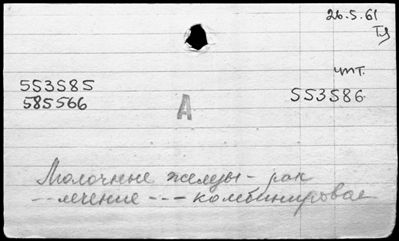 26.5.61
Тд
553585
585566
А
чит.
553586.
Молочные железы - рак
-- лечение --- комбинировое